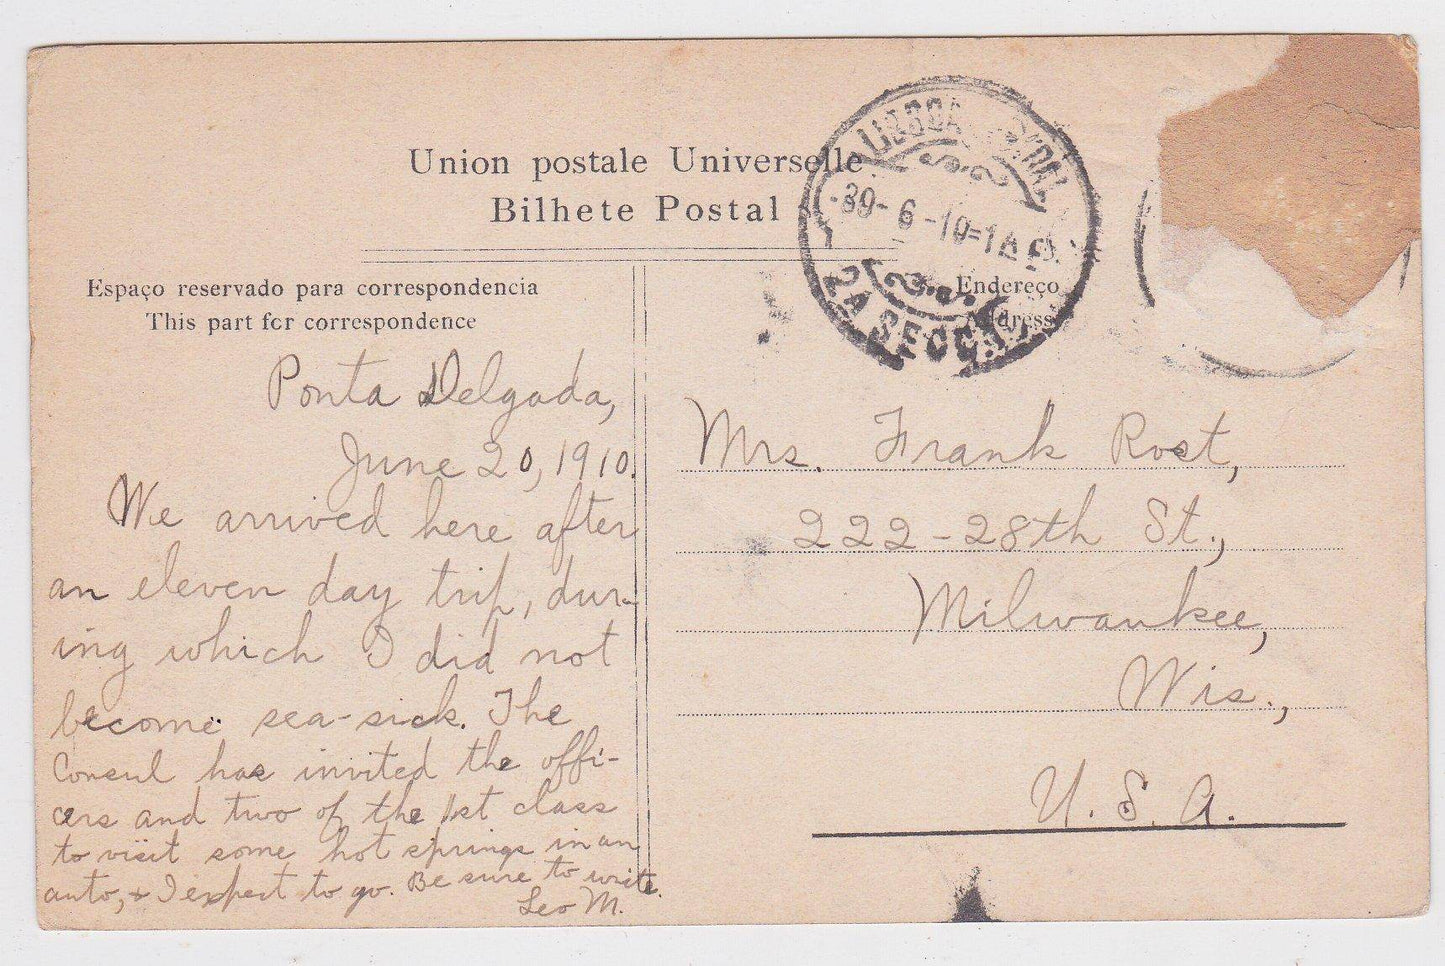 Union postale Universelle
Bilhete Postal
LISBOA CENTRAL
30-6-10=1A
2A SECCÃO
Espaço reservado para correspondencia
This part for correspondence
Endereço
Address
Ponta Delgada,
June 20, 1910.
We arrived here after
an eleven day trip, dur-
ing which I did not
become sea-sick. The
Consul has invited the offi-
cers and two of the 1st class
to visit some hot springs in an
auto, & I expect to go. Be sure to write.
Leo M.
Mrs. Frank Rost,
222-28th St.,
Milwaukee,
Wis.,
U. S. A.